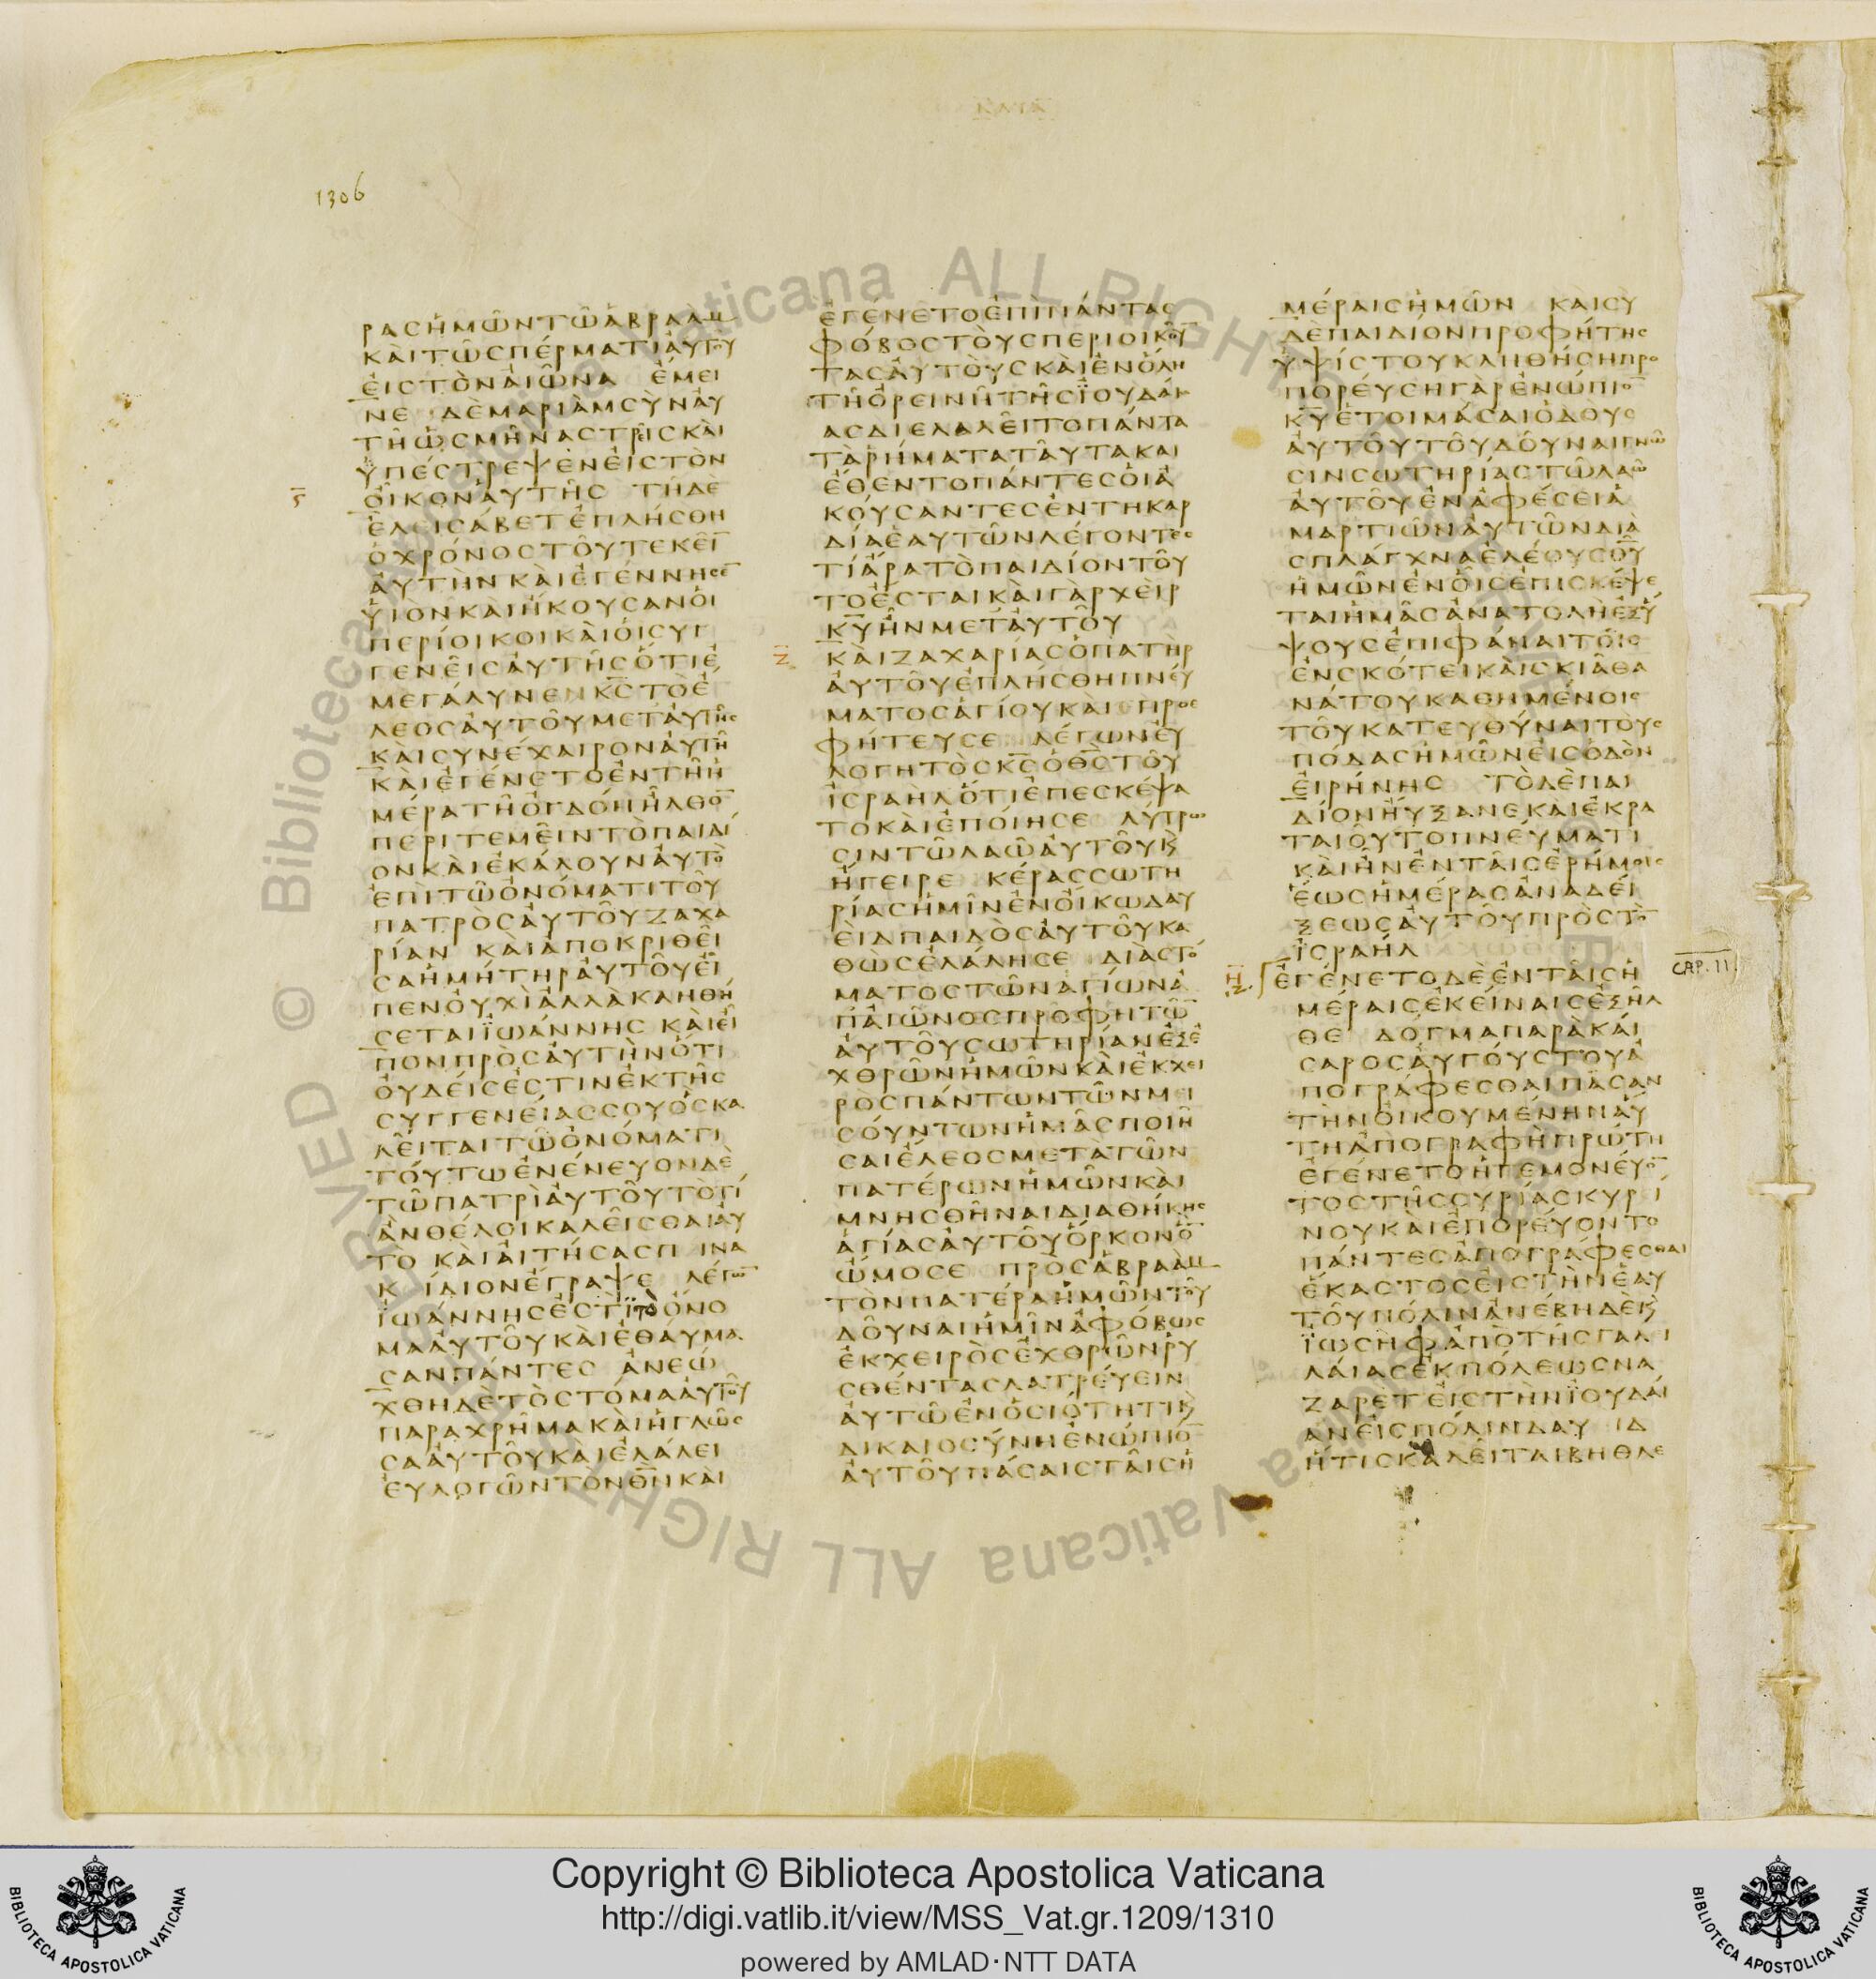 1306
ΡΑΣΗΜΩΝΤΩΑΒΡΑΑΜ
ΚΑΙΤΩΣΠΕΡΜΑΤΙΑΥΤΟΥ
ΕΙΣΤΟΝΑΙΩΝΑ ΕΜΕΙ
ΝΕ ΔΕΜΑΡΙΑΜΣΥΝΑΥ
ΤΗΩΣΜΗΝΑΣΤΡΕΙΣΚΑΙ
ΥΠΕΣΤΡΕΨΕΝΕΙΣΤΟΝ
Ϛ ΟΙΚΟΝΑΥΤΗΣ ΤΗΔΕ
ΕΛΕΙΣΑΒΕΤΕΠΛΗΣΘΗ
ΟΧΡΟΝΟΣΤΟΥΤΕΚΕΙ̅
ΑΥΤΗΝΚΑΙΕΓΕΝΝΗΣΕ̅
ΥΙΟΝΚΑΙΗΚΟΥΣΑΝΟΙ
ΠΕΡΙΟΙΚΟΙΚΑΙΟΙΣΥΓ
ΓΕΝΕΙΣΑΥΤΗΣΟΤΙΕ
ΜΕΓΑΛΥΝΕΝΚ̅Σ̅ΤΟΕ
ΛΕΟΣΑΥΤΟΥΜΕΤΑΥΤΗΣ
ΚΑΙΣΥΝΕΧΑΙΡΟΝΑΥΤΗ
ΚΑΙΕΓΕΝΕΤΟΕΝΤΗΗ
ΜΕΡΑΤΗΟΓΔΟΗΗΛΘΟ̅
ΠΕΡΙΤΕΜΕΙΝΤΟΠΑΙΔΙ
ΟΝΚΑΙΕΚΑΛΟΥΝΑΥΤΟ
ΕΠΙΤΩΟΝΟΜΑΤΙΤΟΥ
ΠΑΤΡΟΣΑΥΤΟΥΖΑΧΑ
ΡΙΑΝ ΚΑΙΑΠΟΚΡΙΘΕΙ
ΣΑΗΜΗΤΗΡΑΥΤΟΥΕΙ
ΠΕΝΟΥΧΙΑΛΛΑΚΛΗΘΗ
ΣΕΤΑΙΪΩΑΝΝΗΣ ΚΑΙΕΙ
ΠΟΝΠΡΟΣΑΥΤΗΝΟΤΙ
ΟΥΔΕΙΣΕΣΤΙΝΕΚΤΗΣ
ΣΥΓΓΕΝΕΙΑΣΣΟΥΟΣΚΑ
ΛΕΙΤΑΙΤΩΟΝΟΜΑΤΙ
ΤΟΥΤΩΕΝΕΝΕΥΟΝΔΕ
ΤΩΠΑΤΡΙΑΥΤΟΥΤΟΤΙ
ΑΝΘΕΛΟΙΚΑΛΕΙΣΘΑΙΑΥ
ΤΟ ΚΑΙΑΙΤΗΣΑΣΠ ΙΝΑ
Κ ΙΔΙΟΝΕΓΡΑΨΕ ΛΕΓΩ̅
ΪΩΑΝΝΗΣΕΣΤΙΤΟΟΝΟ
ΜΑΑΥΤΟΥΚΑΙΕΘΑΥΜΑ
ΣΑΝΠΑΝΤΕΣ ΑΝΕΩ
ΧΘΗΔΕΤΟΣΤΟΜΑΑΥΤΟΥ
ΠΑΡΑΧΡΗΜΑΚΑΙΗΓΛΩΣ
ΣΑΑΥΤΟΥΚΑΙΕΛΑΛΕΙ
ΕΥΛΟΓΩΝΤΟΝΘ̅Ν̅ΚΑΙ
ΕΓΕΝΕΤΟΕΠΙΠΑΝΤΑΣ
ΦΟΒΟΣΤΟΥΣΠΕΡΙΟΙΚΟΥ̅
ΤΑΣΑΥΤΟΥΣΚΑΙΕΝΟΛΗ
ΤΗΟΡΕΙΝΗΤΗΣΪΟΥΔΑΙ
ΑΣΔΙΕΛΑΛΕΙΤΟΠΑΝΤΑ
ΤΑΡΗΜΑΤΑΤΑΥΤΑΚΑΙ
ΕΘΕΝΤΟΠΑΝΤΕΣΟΙΑ
ΚΟΥΣΑΝΤΕΣΕΝΤΗΚΑΡ
ΔΙΑΕΑΥΤΩΝΛΕΓΟΝΤΕΣ
ΤΙΑΡΑΤΟΠΑΙΔΙΟΝΤΟΥ
ΤΟΕΣΤΑΙΚΑΙΓΑΡΧΕΙΡ
Κ̅Υ̅ΗΝΜΕΤΑΥΤΟΥ
Ζ ΚΑΙΖΑΧΑΡΙΑΣΟΠΑΤΗΡ
ΑΥΤΟΥΕΠΛΗΣΘΗΠΝΕΥ
ΜΑΤΟΣΑΓΙΟΥΚΑΙ ΠΡΟΕ
ΦΗΤΕΥΣΕ ΛΕΓΩΝΕΥ
ΛΟΓΗΤΟΣΚ̅Σ̅ΟΘ̅Σ̅ΤΟΥ
ΙΣΡΑΗΛΟΤΙΕΠΕΣΚΕΨΑ
ΤΟΚΑΙΕΠΟΙΗΣΕ ΛΥΤΡΩ
ΣΙΝΤΩΛΑΩΑΥΤΟΥΚ
ΗΓΕΙΡΕ ΚΕΡΑΣΣΩΤΗ
ΡΙΑΣΗΜΙΝΕΝΟΙΚΩΔΑΥ
ΕΙΔΠΑΙΔΟΣΑΥΤΟΥΚΑ
ΘΩΣΕΛΑΛΗΣΕ ΔΙΑΣΤΟ
ΜΑΤΟΣΤΩΝΑΓΙΩΝΑ
ΠΑΙΩΝΟΣΠΡΟΦΗΤΩ̅
ΑΥΤΟΥΣΩΤΗΡΙΑΝΕΞΕ
ΧΘΡΩΝΗΜΩΝΚΑΙΕΚΧΕΙ
ΡΟΣΠΑΝΤΩΝΤΩΝΜΙ
ΣΟΥΝΤΩΝΗΜΑΣΠΟΙΗ
ΣΑΙΕΛΕΟΣΜΕΤΑΤΩΝ
ΠΑΤΕΡΩΝΗΜΩΝΚΑΙ
ΜΝΗΣΘΗΝΑΙΔΙΑΘΗΚΗΣ
ΑΓΙΑΣΑΥΤΟΥΟΡΚΟΝΟ̅
ΩΜΟΣΕ ΠΡΟΣΑΒΡΑΑΜ
ΤΟΝΠΑΤΕΡΑΗΜΩΝΤΟΥ
ΔΟΥΝΑΙΗΜΙΝΑΦΟΒΩΣ
ΕΚΧΕΙΡΟΣΕΧΘΡΩΝΡΥ
ΣΘΕΝΤΑΣΛΑΤΡΕΥΕΙΝ
ΑΥΤΩΕΝΟΣΙΟΤΗΤΙΚ
ΔΙΚΑΙΟΣΥΝΗΕΝΩΠΙΟ̅
ΑΥΤΟΥΠΑΣΑΙΣΤΑΙΣΗ
ΜΕΡΑΙΣΗΜΩΝ ΚΑΙΣΥ
ΔΕΠΑΙΔΙΟΝΠΡΟΦΗΤΗΣ
ΥΨΙΣΤΟΥΚΛΗΘΗΣΗΠΡΟ
ΠΟΡΕΥΣΗΓΑΡΕΝΩΠΙΟ̅
Κ̅Υ̅ΕΤΟΙΜΑΣΑΙΟΔΟΥΣ
ΑΥΤΟΥΤΟΥΔΟΥΝΑΙΓΝΩ
ΣΙΝΣΩΤΗΡΙΑΣΤΩΛΑΩ
ΑΥΤΟΥΕΝΑΦΕΣΕΙΑ
ΜΑΡΤΙΩΝΑΥΤΩΝΔΙΑ
ΣΠΛΑΓΧΝΑΕΛΕΟΥΣΘ̅Υ̅
ΗΜΩΝΕΝΟΙΣΕΠΙΣΚΕΨΕ
ΤΑΙΗΜΑΣΑΝΑΤΟΛΗΕΞΥ
ΨΟΥΣΕΠΙΦΑΝΑΙΤΟΙΣ
ΕΝΣΚΟΤΕΙΚΑΙΣΚΙΑΘΑ
ΝΑΤΟΥΚΑΘΗΜΕΝΟΙΣ
ΤΟΥΚΑΤΕΥΘΥΝΑΙΤΟΥΣ
ΠΟΔΑΣΗΜΩΝΕΙΣΟΔΟΝ
ΕΙΡΗΝΗΣ ΤΟΔΕΠΑΙ
ΔΙΟΝΗΥΞΑΝΕΚΑΙΕΚΡΑ
ΤΑΙΟΥΤΟΠΝΕΥΜΑΤΙ
ΚΑΙΗΝΕΝΤΑΙΣΕΡΗΜΟΙΣ
ΕΩΣΗΜΕΡΑΣΑΝΑΔΕΙ
ΞΕΩΣΑΥΤΟΥΠΡΟΣΤΟ̅
ΙΣΡΑΗΛ
Η ΕΓΕΝΕΤΟΔΕΕΝΤΑΙΣΗ CAP. II.
ΜΕΡΑΙΣΕΚΕΙΝΑΙΣΕΞΗΛ
ΘΕ ΔΟΓΜΑΠΑΡΑΚΑΙ
ΣΑΡΟΣΑΥΓΟΥΣΤΟΥΑ
ΠΟΓΡΑΦΕΣΘΑΙΠΑΣΑΝ
ΤΗΝΟΙΚΟΥΜΕΝΗΝΑΥ
ΤΗΑΠΟΓΡΑΦΗΠΡΩΤΗ
ΕΓΕΝΕΤΟΗΓΕΜΟΝΕΥΟ̅
ΤΟΣΤΗΣΣΥΡΙΑΣΚΥΡΙ
ΝΟΥΚΑΙΕΠΟΡΕΥΟΝΤΟ
ΠΑΝΤΕΣΑΠΟΓΡΑΦΕΣΘΑΙ
ΕΚΑΣΤΟΣΕΙΣΤΗΝΕΑΥ
ΤΟΥΠΟΛΙΝΑΝΕΒΗΔΕΚ
ΪΩΣΗΦΑΠΟΤΗΣΓΑΛΙ
ΛΑΙΑΣΕΚΠΟΛΕΩΣΝΑ
ΖΑΡΕΤΕΙΣΤΗΝΪΟΥΔΑΙ
ΑΝΕΙΣΠΟΛΙΝΔΑΥ ΙΔ
ΗΤΙΣΚΑΛΕΙΤΑΙΒΗΘΛΕ
© Biblioteca Apostolica Vaticana ALL RIGHTS RESERVED
Copyright © Biblioteca Apostolica Vaticana
http://digi.vatlib.it/view/MSS_Vat.gr.1209/1310
powered by AMLAD·NTT DATA
BIBLIOTECA APOSTOLICA VATICANA
BIBLIOTECA APOSTOLICA VATICANA